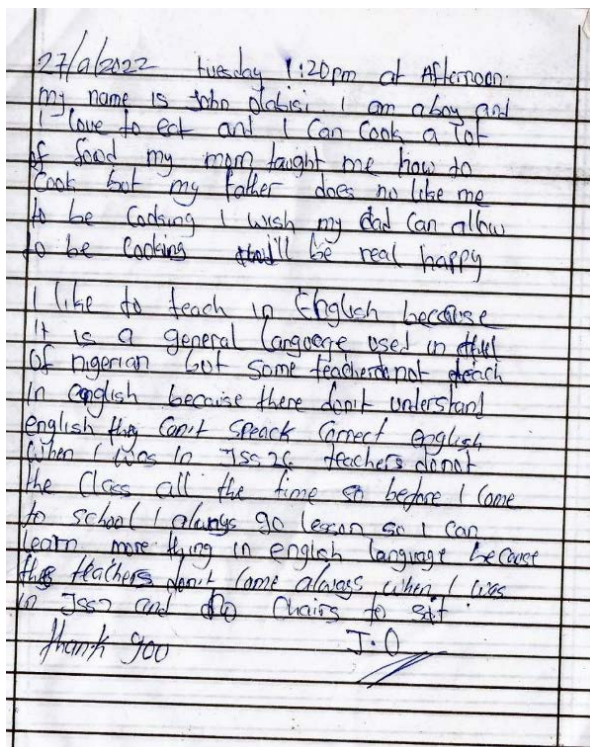 27/9/2022 tuesday 1:20pm at Afternoon.
my name is John olabisi I am a boy and
I love to eat and I can cook a lot
of food my mom taught me how to
cook but my father does no like me
to be cooking I wish my dad can allow
to be cooking I will be real happy
I like to teach in English because
it is a general language used in
of nigerian but some teacher do not teach
in english because there don't understand
english they can't speack correct english
when I was in Jss 2C teachers do not
the class all the time so before I come
to school I always go lesson so I can
learn more thing in english language because
the teachers don't come always when I was
in Jss2 and no chairs to sit
thank you J.O